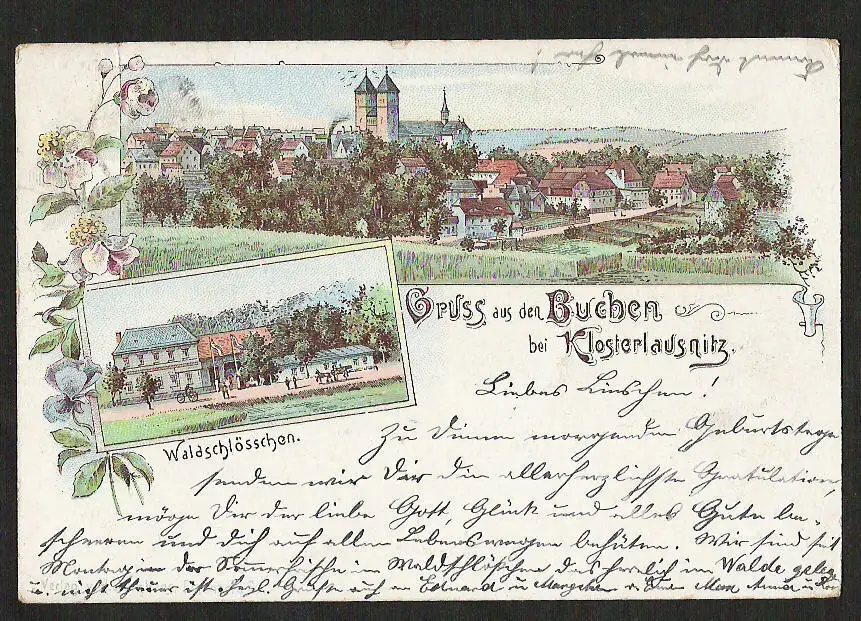 Gruss aus den Buchen
bei Klosterlausnitz.
Waldschlösschen.
Liebes Lieschen!
Zu Deinem morgenden Geburtstage
senden wir Dir die allerherzlichste Gratulation,
möge Dir der liebe Gott, Glück und alles Gute be-
scheeren und Dich auf allen Lebenswegen behüten. Wir sind seit
Montag in der Sommerfrische im Waldschlösschen das herrlich im Walde geleg
u. nicht theuer ist. Herzl. Grüße auch an Eduard u Margethe Max Anna u
Verlag